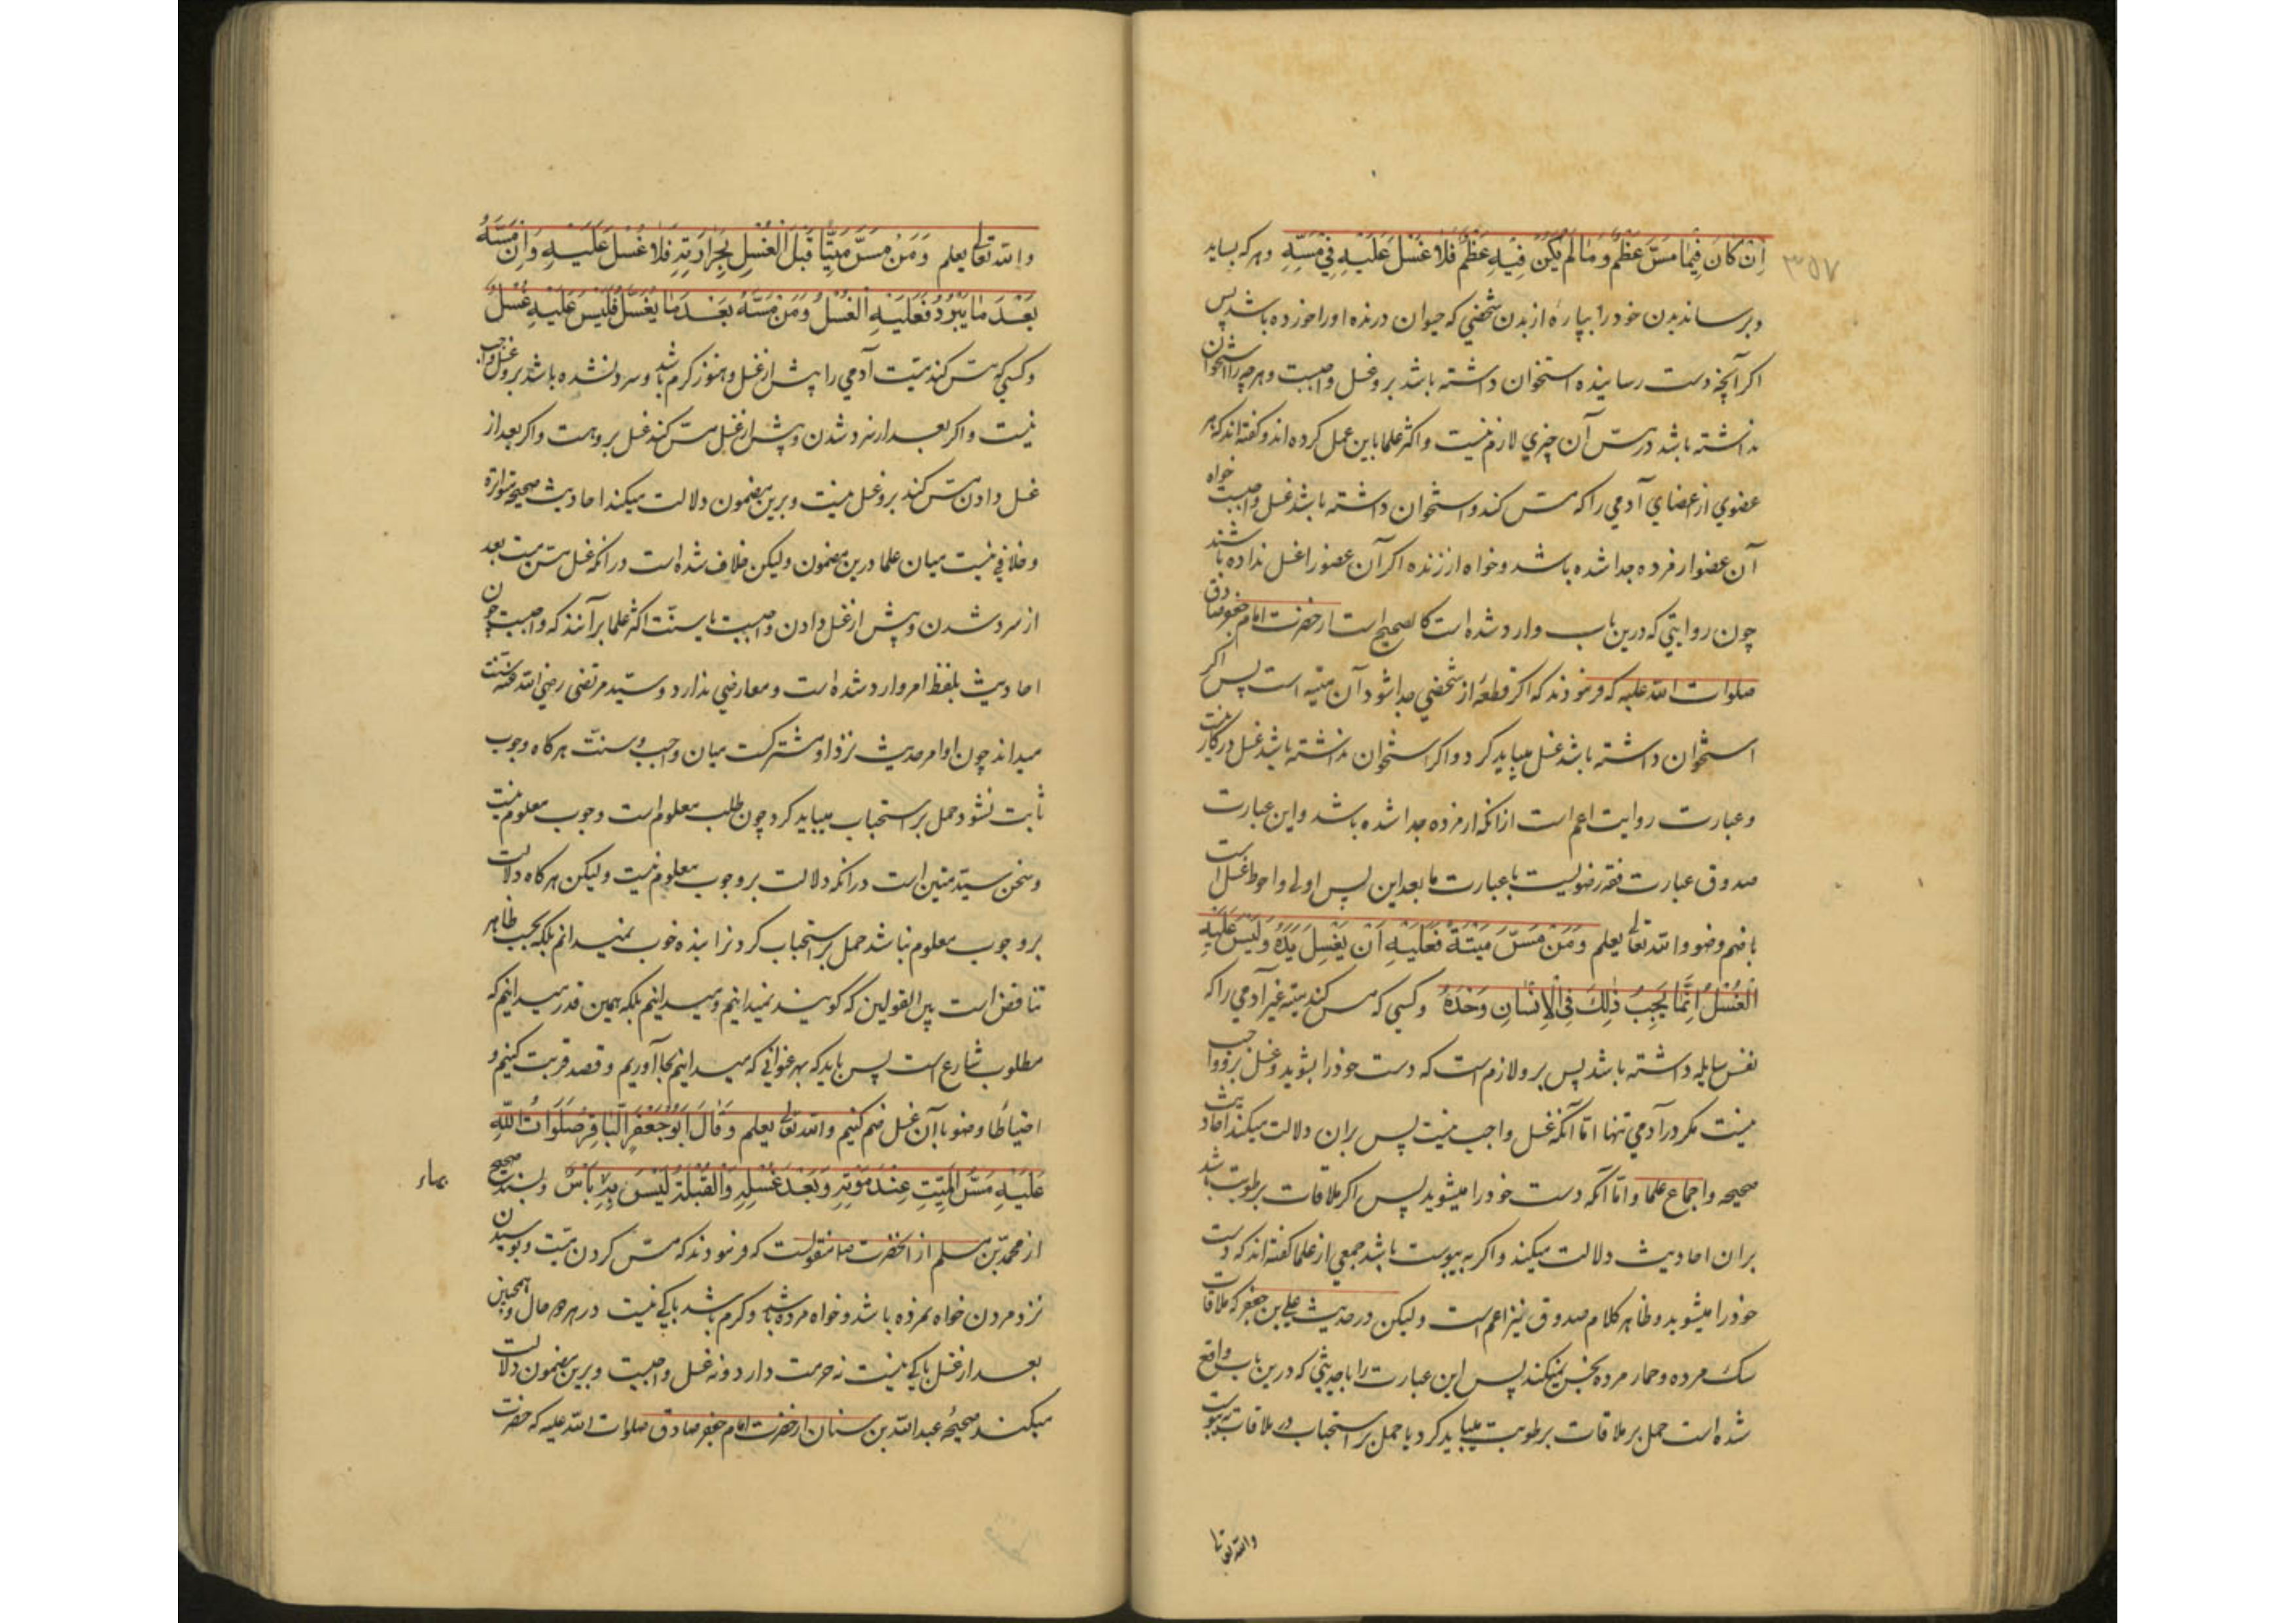 ۳۵۷
اِنْ كَانَ فِيْمَا مَسَّ عَظْمٌ وَمَا لَمْ يَكُنْ فِيْهِ عَظْمٌ فَلَا غُسْلَ عَلَيْهِ فِيْ مَسِّهِ وهركه بسايد
وبرساند بدن خود را بپارهٔ از بدن شخصي كه حيوان درنده او را خورده باشد پس
اكر آنچه دست رسانيده استخوان داشته باشد برو غسل واجبست وهرچه را استخوان
نداشته باشد در مسّ آن چيزي لازم نيست واكثر علما باين عمل كرده اند وكفته اند كه هر
عضوي از اعضاي آدمي را كه مسّ كند واستخوان داشته باشد غسل واجبست خواه
آن عضو از مرده جدا شده باشد وخواه از زنده اكر آن عضو را غسل نداده باشند
چون روايتي كه درين باب وارد شده است كالصحيح است از حضرت امام جعفر صادق
صلوات الله عليه كه فرمودند كه اكر قطعهٔ از شخصي جدا شود آن ميته است پس اكر
استخوان داشته باشد غسل ميبايد كرد واكر استخوان نداشته باشد غسل دركار نيست
وعبارت روايت اعم است ازانكه از مرده جدا شده باشد واين عبارت
صدوق عبارت فقه رضويست با عبارت ما بعد اين پس اولي واحوط غسل است
با ضم وضو والله تعالى يعلم وَمَنْ مَسَّ مَيْتَةً فَعَلَيْهِ اَنْ يَغْسِلَ يَدَهُ وَلَيْسَ عَلَيْهِ
الْغُسْلُ اِنَّمَا يَجِبُ ذٰلِكَ فِى الْاِنْسَانِ وَحْدَهُ وكسي كه مس كند ميته غير آدمي را كه
نفس سايله داشته باشد پس برو لازم است كه دست خود را بشويد وغسل برو واجب
نيست مكر در آدمي تنها امّا آنكه غسل واجب نيست پس بران دلالت ميكند احاديث
صحيحه واجماع علما وامّا آنكه دست خود را ميشويد پس اكر ملاقات برطوبت باشد
بران احاديث دلالت ميكند واكر به يبوست باشد جمعي از علما كفته اند كه دست
خود را ميشويد وظاهر كلام صدوق نيز اعم است وليكن در حديث علي بن جعفر كه ملاقات
سك مرده وحمار مرده نجس نميكند پس اين عبارت را با حديثي كه درين باب واقع
شده است حمل بر ملاقات برطوبت ميبايد كرد يا حمل بر استحباب در ملاقات به يبوست
والله تعالى
والله تعالى يعلم وَمَنْ مَسَّ مَيِّتًا قَبْلَ الْغُسْلِ بِحَرَارَتِهِ فَلَا غُسْلَ عَلَيْهِ وَاِنْ مَسَّهُ
بَعْدَ مَا يَبْرُدُ فَعَلَيْهِ الْغُسْلُ وَمَنْ مَسَّهُ بَعْدَ مَا يُغَسَّلُ فَلَيْسَ عَلَيْهِ غُسْلٌ
وكسي كه مسّ كند ميّت آدمي را پيش از غسل وهنوز كرم باشد وسرد نشده باشد برو غسل واجب
نيست واكر بعد از سرد شدن وپيش از غسل مسّ كند غسل بروهست واكر بعد از
غسل دادن مسّ كند برو غسل نيست وبرين مضمون دلالت ميكند احاديث صحيحه متواتره
وخلافي نيست ميان علما درين مضمون وليكن خلاف شده است درانكه غسل مسّ ميت بعد
از سرد شدن وپيش از غسل دادن واجبست يا سنّت اكثر علما برآنند كه واجبست چون
احاديث بلفظ امر وارد شده است ومعارضي ندارد وسيّد مرتضى رضي الله عنه سنّت
ميداند چون اوامر حديث نزد او مشتركست ميان واجب وسنّت هركاه وجوب
ثابت نشود حمل بر استحباب ميبايد كرد چون طلب معلوم است وجوب معلوم نيست
وسخن سيّد متين است درانكه دلالت بر وجوب معلوم نيست وليكن هركاه دلالت
بر وجوب معلوم نباشد حمل بر استحباب كردنرا بنده خوب نميدانم بلكه بحسب ظاهر
تناقض است بين القولين كه كويند نميدانيم وميدانيم بلكه همين قدر ميدانيم كه
مطلوب شارع است پس بايد كه بهر عنواني كه ميدانيم بجا آوريم وقصد قربت كنيم و
احتياطًا وضو با آن غسل ضم كنيم والله تعالى يعلم وَقَالَ اَبُوْ جَعْفَرٍ الْبَاقِرُ صَلَوَاتُ اللّٰهِ
عَلَيْهِ مَسُّ الْمَيِّتِ عِنْدَ مَوْتِهِ وَبَعْدَ غُسْلِهِ وَالْقُبْلَةُ لَيْسَ بِهِ بَأْسٌ وبسند صحيح
از محمّد بن مسلم از آنحضرت ص منقولست كه فرمودند كه مسّ كردن ميّت وبوسيدن
نزد مردن خواه نمرده باشد وخواه مرده باشد وكرم باشد باكي نيست در هر دو حال وهمچنين
بعد از غسل باكي نيست نه حرمت دارد ونه غسل واجبست وبرين مضمون دلالت
ميكند صحيحهٔ عبدالله بن سنان از حضرت امام جعفر صادق صلوات الله عليه كه حضرت